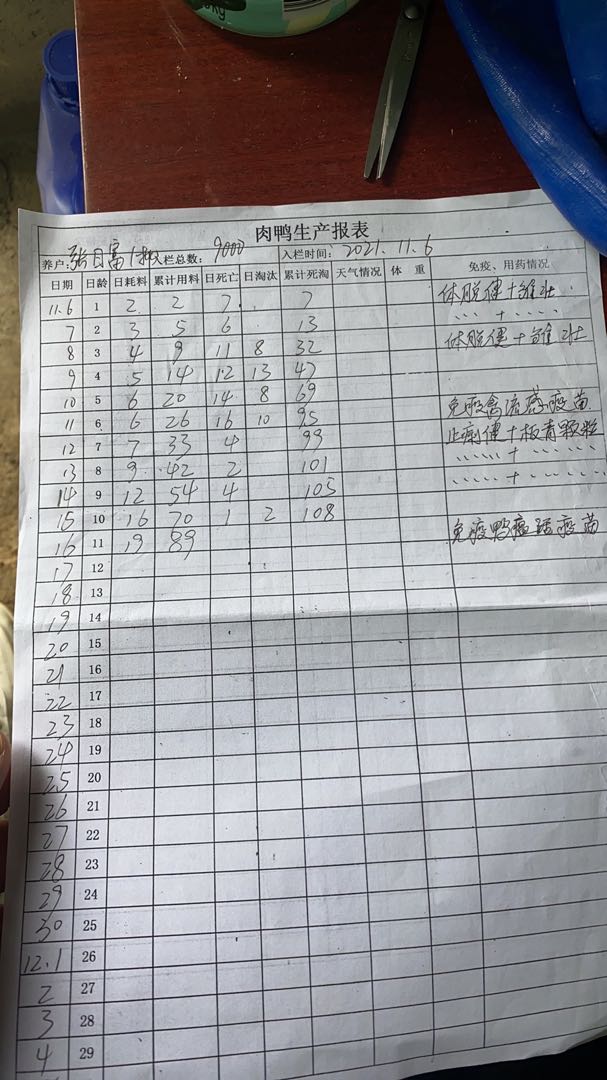 kg
肉鸭生产报表
养户: 张日富 入栏总数: 9000 入栏时间: 2021.11.6
日期 日龄 日耗料 累计用料 日死亡 日淘汰 累计死淘 天气情况 体 重 免疫、用药情况
11.6 1 2 2 7 7 体脱健+雏壮
7 2 3 5 6 13 〃〃 + 〃〃
8 3 4 9 11 8 32 体脱健+雏壮
9 4 5 14 12 13 47
10 5 6 20 14 8 69 免疫禽流感疫苗
11 6 6 26 16 10 95 止痢健+板青颗粒
12 7 7 33 4 99 〃〃 + 〃〃
13 8 9 42 2 101 〃〃 + 〃〃
14 9 12 54 4 105
15 10 16 70 1 2 108 免疫鸭瘟活疫苗
16 11 19 89
17 12
18 13
19 14
20 15
21 16
22 17
23 18
24 19
25 20
26 21
27 22
28 23
29 24
30 25
12.1 26
2 27
3 28
4 29